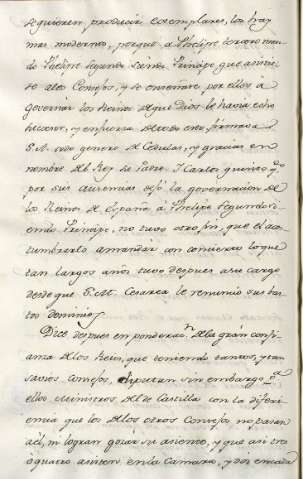 se quieren producir exemplares, los hay
mas modernos, porque à Phelipe tercero man-
do Phelipe segundo siendo Principe que asistie-
se à los Consejos, y se enterase por ellos à
governar los Reinos de que Dios le havia echo
heredero, y en fuerza de esta orden firmaba
S. M. todo genero de Cedulas, y gracias en
nombre del Rey su Padre. Y Carlos quinto
por sus ausencias dejó la governacion de
los Reinos de España à Phelipe segundo si-
endo Principe, no tuvo otro fin, que el ac-
tumbrarlo à mandar con acierto lo que
tan largos años tuvo despues à su cargo
desde que S. M. Cesarea le renunció sus bas-
tos dominios.
Dice despues en ponderaz.n de la gran confi-
anza de los Reies, que teniendo tantos, y tan
savios Consejos, diputan sin embargo
ellos Ministros de el de Castilla con la difere-
ncia que los de los otros Consejos no pasan
à él, ni logran gozar su asiento, y que asi tres
ò quatro asisten en la Camara, y dos en cada